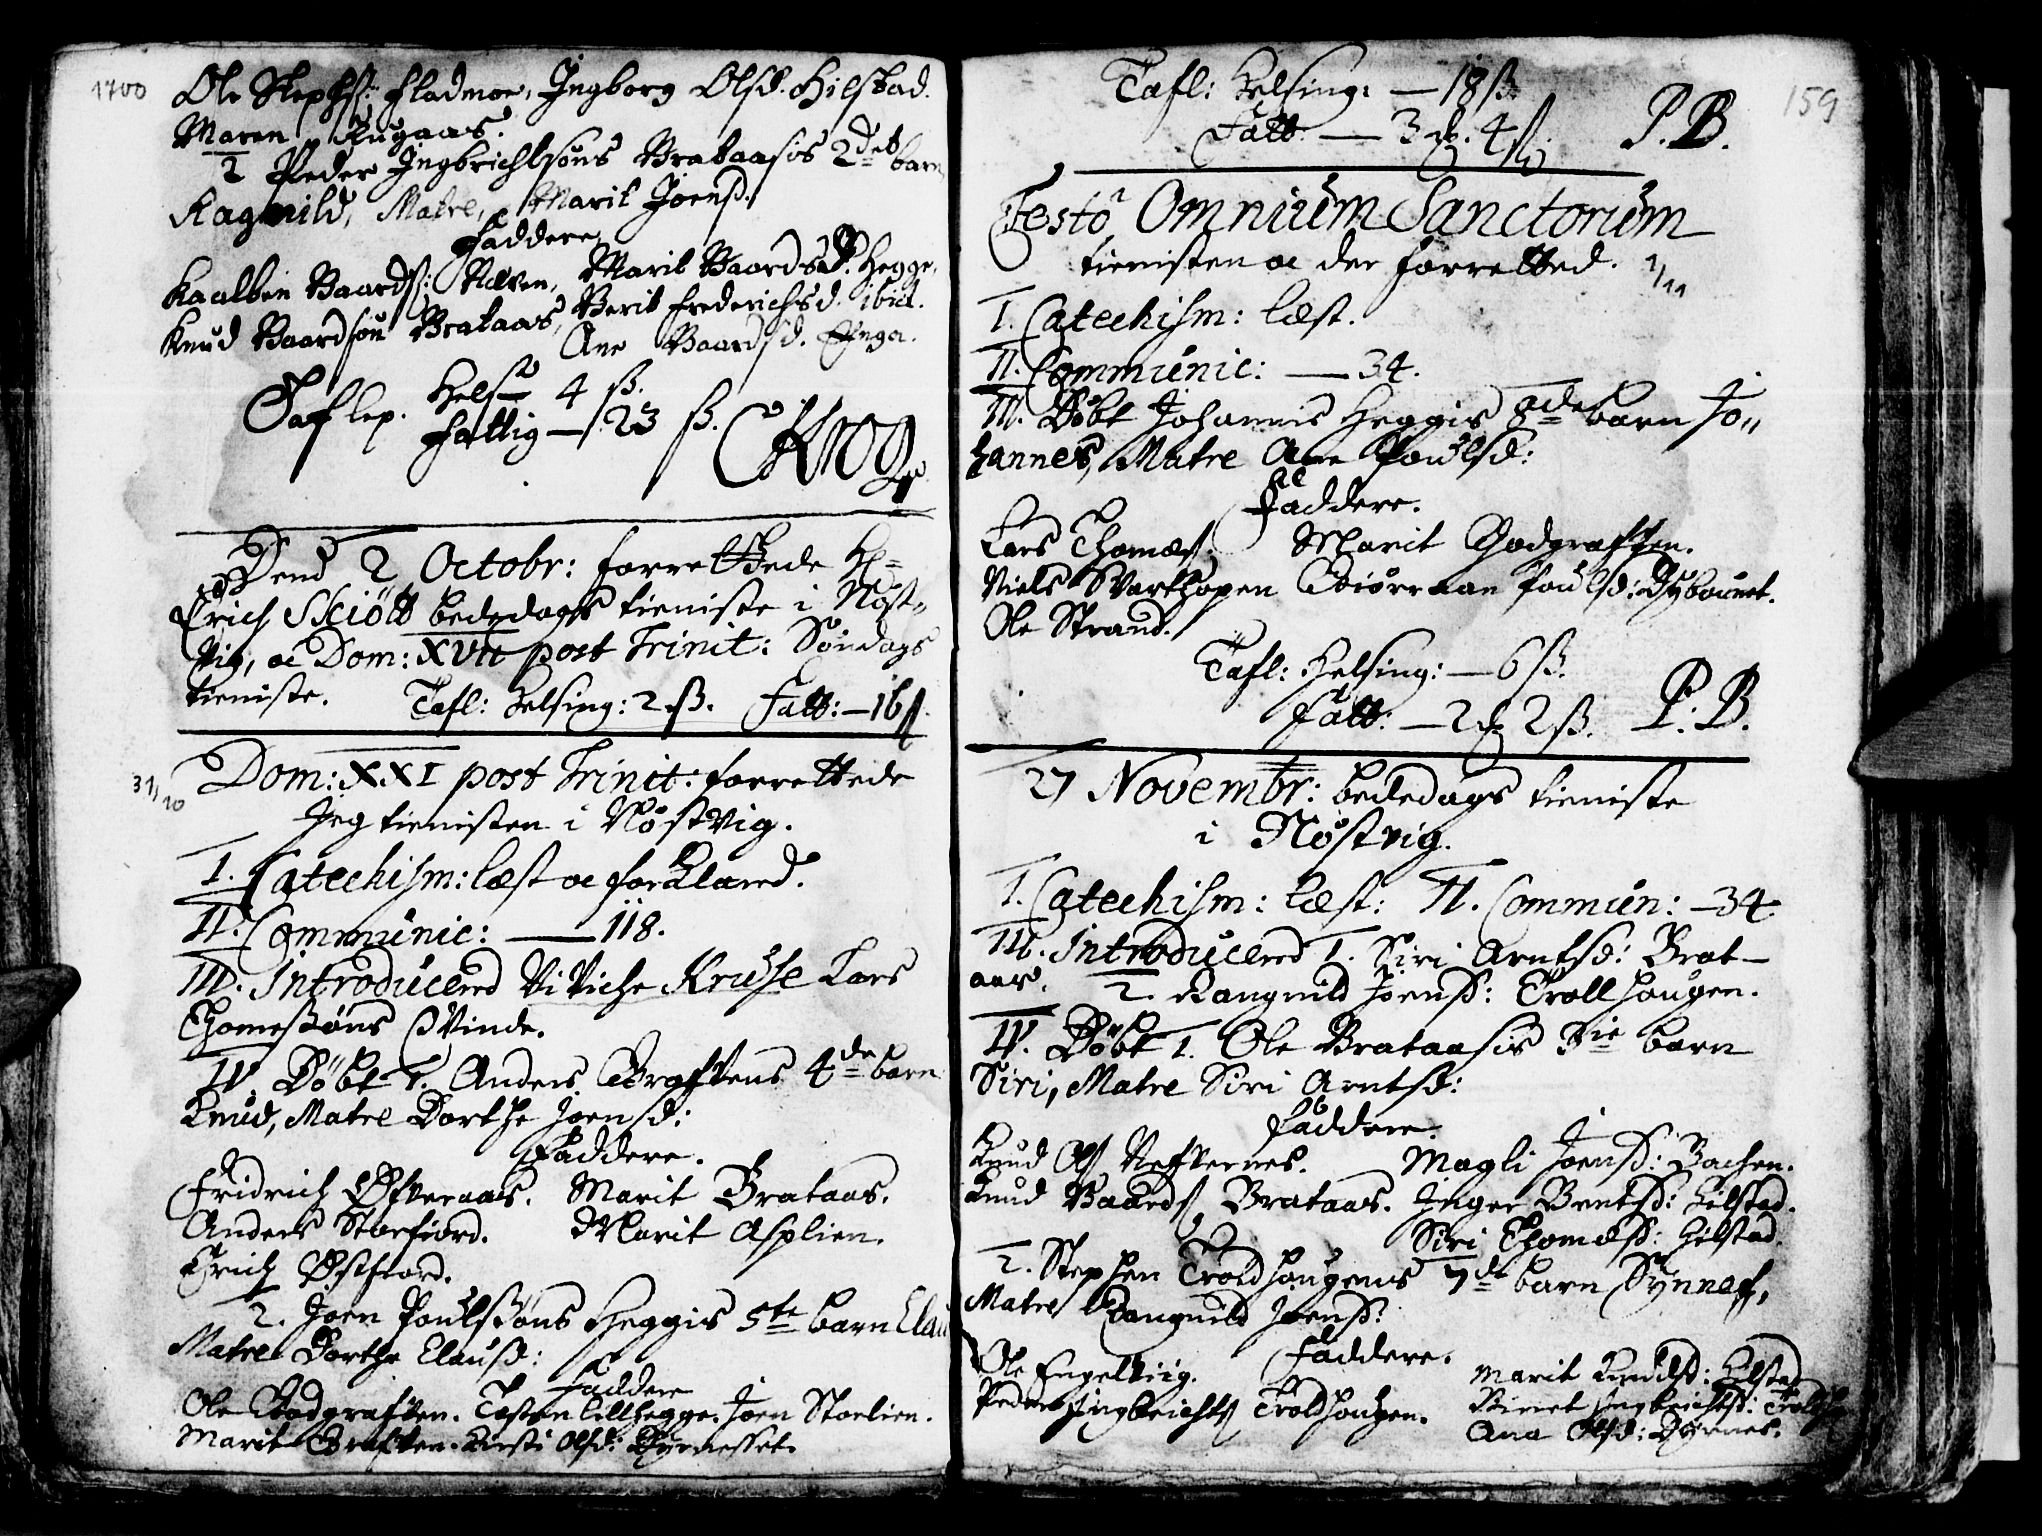 1700
Ole Stephs: Fladmoe, Ingborg Olsd. Hilstad.
Maren Rugaas.
2 Peder Ingbrichtsøns Brataasis 2det barn
Ragnild, Matre, Marit Joensd.
Faddere,
Kaalbein Baards: Næven, Marit Baordsd. Hegge,
Knud Baardsøn Brataas, Berit Frederichsd. ibid.
Ane Baardsd. Enga.
Taflep. Hels 4 ß.
Fattig — 23 ß. CKrog
Dend 2 Octobr: forrettede H=
Erich Skiøtt bededags tieniste i Nøst-
vig, oc Dom: XVII post Trinit: Søndags
tieniste. Tafl: Helsing: 2 ß. Fatt: — 16 ß.
31/10 Dom: XXI post Trinit: forrettede
Jeg tienisten i Nøstvig.
I. Catechism: læst oc forklared.
II. Communic: — 118.
III. Introducered ViViche Kruse Lars
Thomesøns qvinde.
IV. Døbt 1. Anders Graftens 4de barn
Knud, Matre Dorthe Joensd:
Faddere.
Fridrich Øfveraas. Marit Brataas.
Anders Storfiord. Marit Asplien.
Erich Østfiord.
2. Joen Poulssøns Heggis 5te barn Clau
Matre Dorthe Clausd:
Faddere
Ole Godgraften. Tosten Lillhegge. Joen Stoelien.
Marit Graften. Kirsti Olsd: Dyrnesset.
159
Tafl: Helsing: — 18 ß.
Fatt: — 3 & 4 ß. P. B.
Festo Omnium Sanctorum
tienisten oc der forretted. 1/11
I. Catechism: læst.
II. Communic: — 34.
III. Døbt Johannis Heggis 8de barn Jo,,
hannes, Matre Ane Poulsd:
Faddere.
Lars Thomæs. Marit Godgraften.
Niels Svarthopen Poulsd:
Ole Strand.
Tafl: Helsing: — 6 ß.
Fatt: — 2 & 2 ß. P. B.
27 Novembr: bededags tieniste
i Nøstvig.
I. Catechism: læst: II. Commun: — 34
III. Introducered 1. Siri Arntsd: Brat-
aas. 2. Rangnild Joensd: Trollhaugen.
IV. Døbt 1. Ole Brataasis 3ie barn
Siri, Matre Siri Arntsd:
Faddere.
Knud Ols Nefvernes. Magli Joensd: Bachen.
Knud Baards Brataas. Inger Berntsd: Hilstad.
Siri Thomesd: Hilstad.
2. Stephen Troldhaugens 7de barn Synnef,
Matre Rangnild Joensd:
Faddere.
Ole Engelviig. Marit Knudsd: Hilstad
Peder Ingbrichts Troldhaugen. Ingbrichtsd: Troldh
Ana Olsd: Dyrnes.